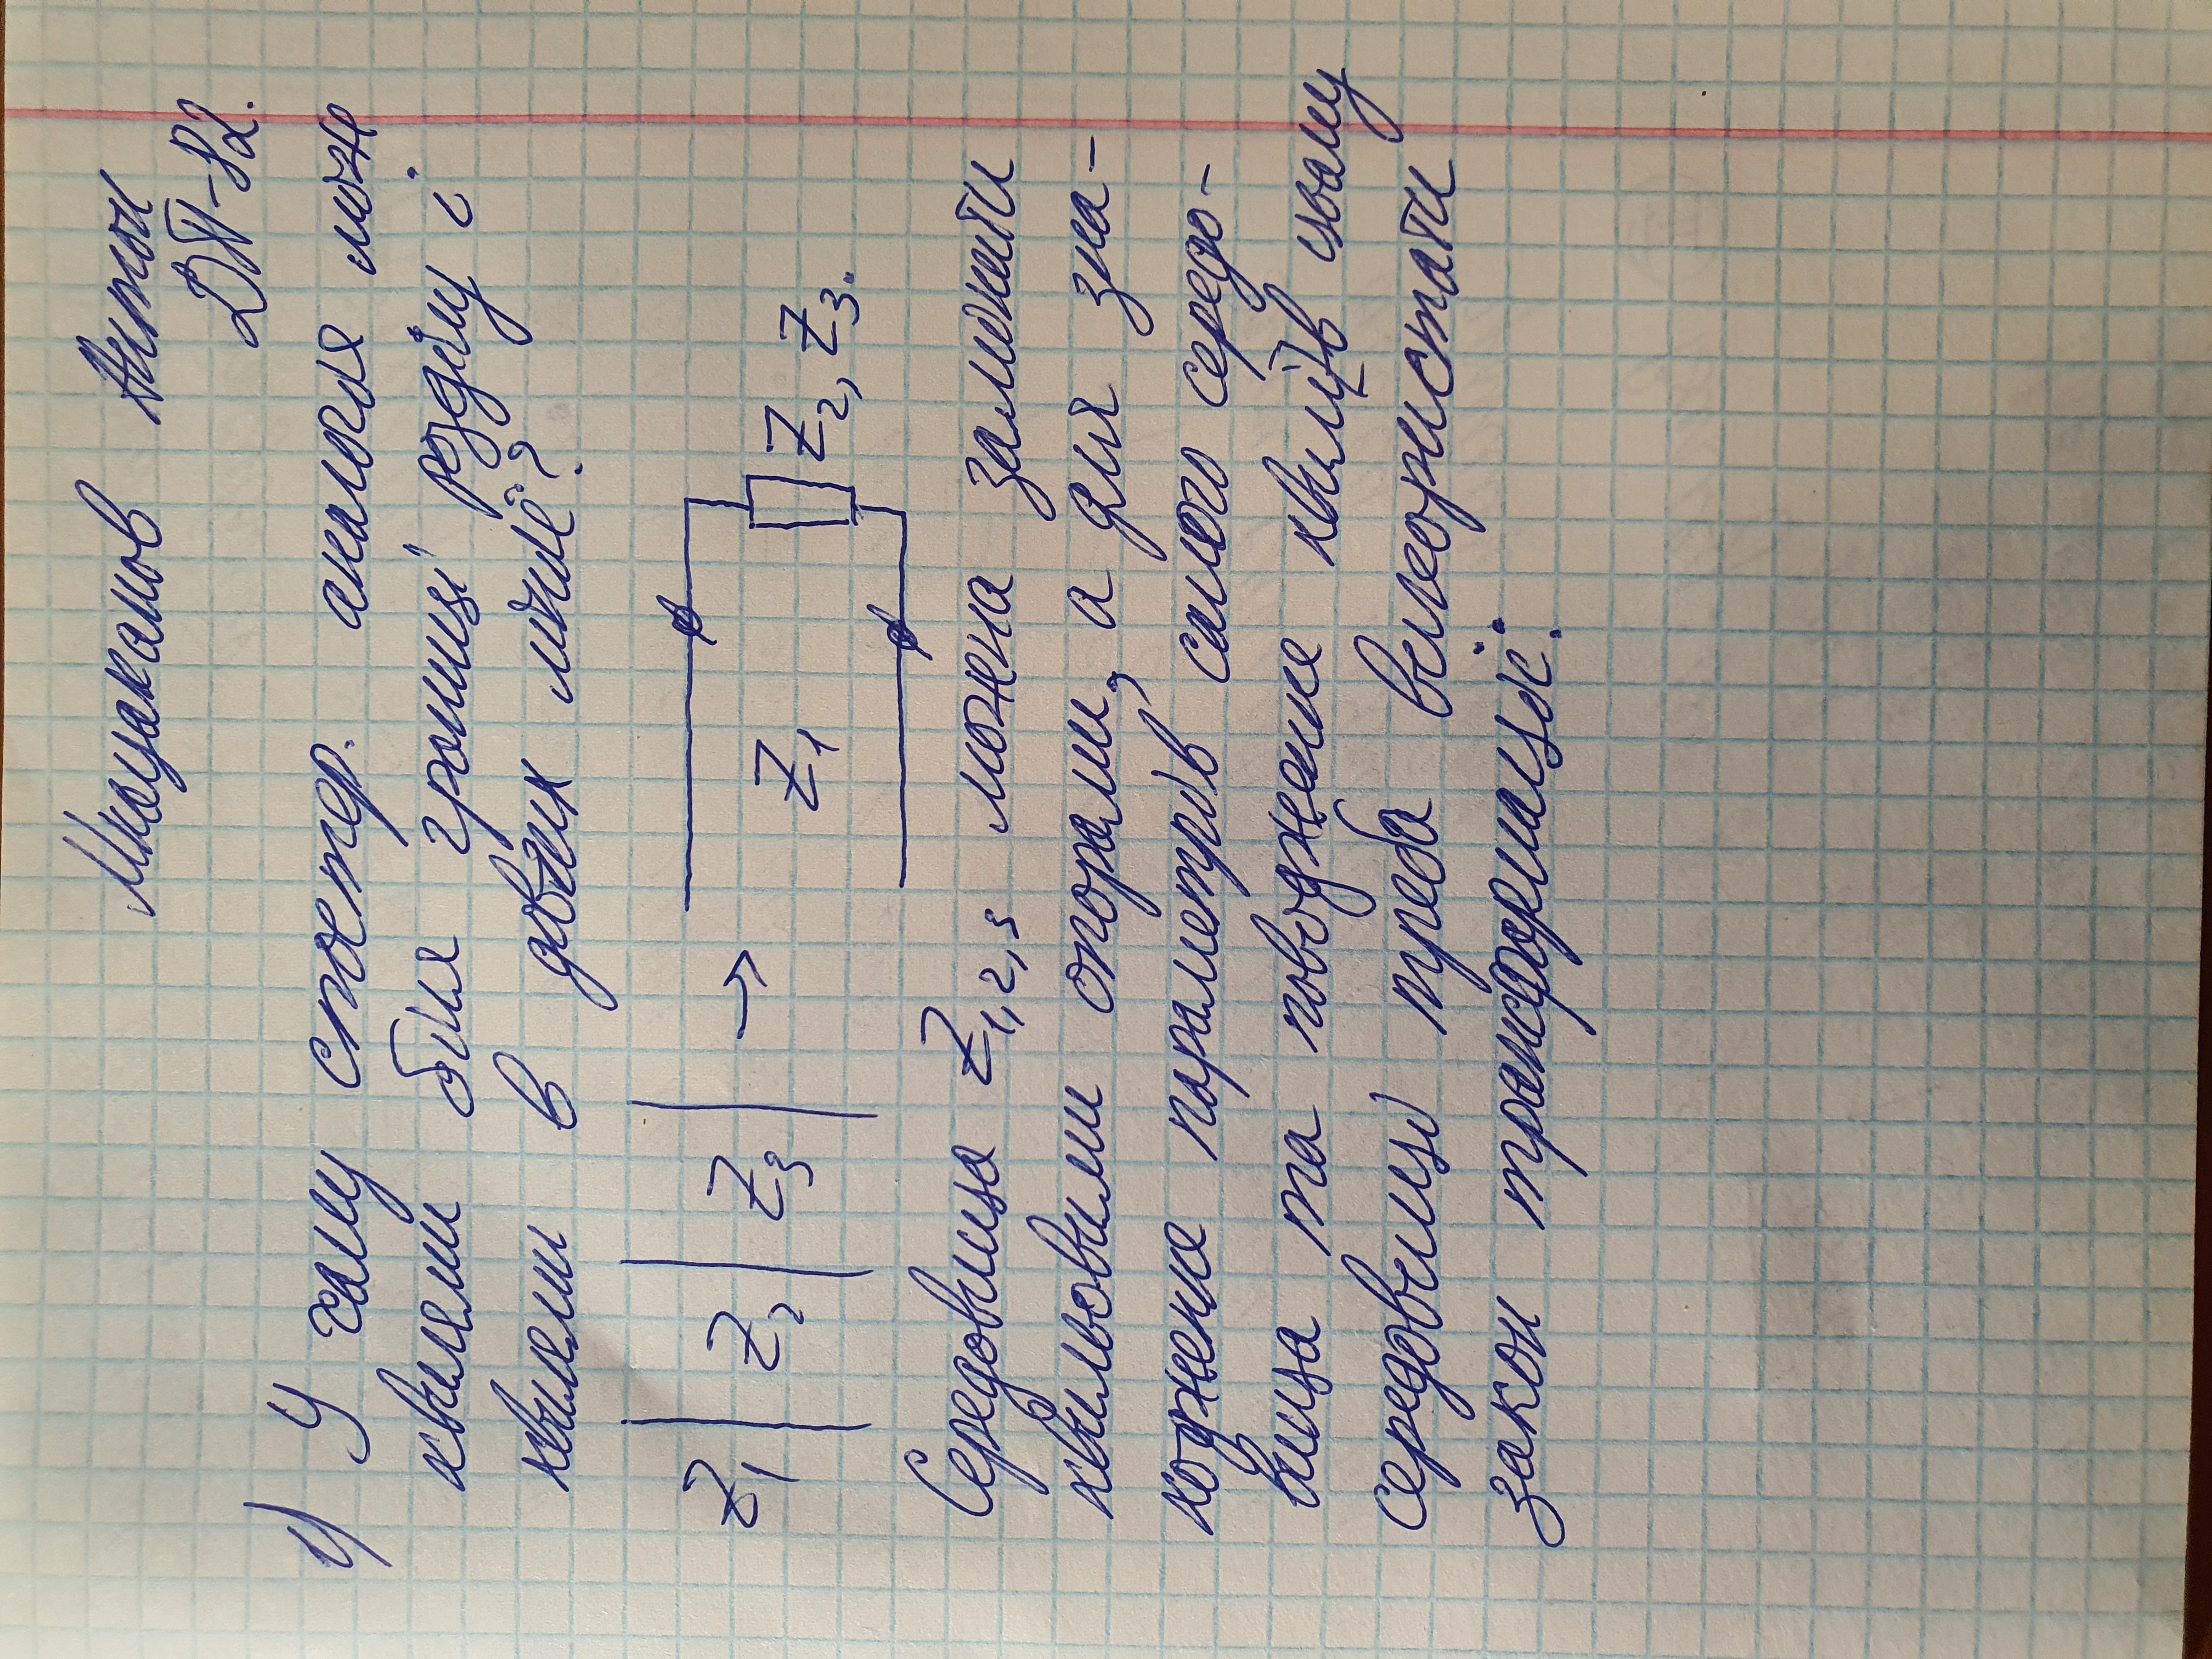 Мнацаканов Антон
ДП-82.
1) У чому спостер. аналогія між
хвилями біля границі розділу і
хвилями в довгих лініє?
Z1 Z2 Z3 → Z1 Z2, Z3.
Середовища Z1,2,3 можна замінити
хвильовими опорами, а для зна-
ходження параметрів самого середо-
вища та поводження хвилі в цьому
середовищі треба використати
закон трансформації.